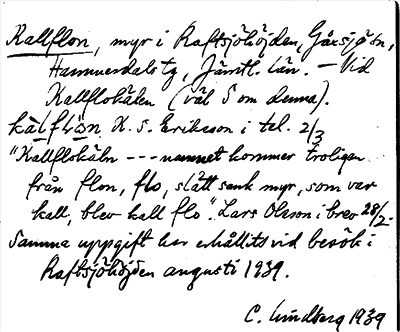 Kallflon, myr i Raftsjöhöjden, Gåxsjö sn,
Hammerdals tg, Jämtl. län. — Vid
Kallflokälen (väl S om denna).
kàlflṑn K. S. Eriksson i tel. 2/3
"Kallflokäln --- namnet kommer troligen
från flon, flo, slätt sank myr, som var
kall, blev kall flo". Lars Olsson i brev 28/2.
Samma uppgift har erhållits vid besök i
Raftsjöhöjden augusti 1939.
C. Lindberg 1939